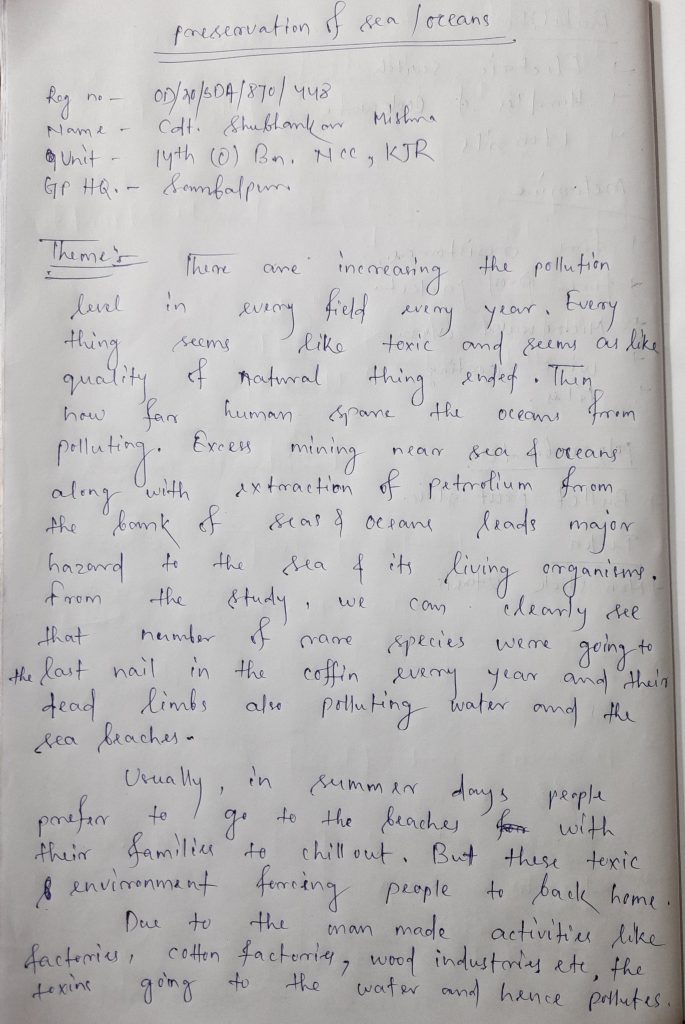 preservation of sea / oceans
Reg no - OD/20/SDA/870/448
Name - Cdt. Shubhankar Mishra
Unit - 14th (O) Bn. NCC, KJR
GP HQ. - Sambalpur.
Theme:- There are increasing the pollution
level in every field every year. Every
thing seems like toxic and seems as like
quality of natural thing ended. Then
how far human spare the oceans from
polluting. Excess mining near sea & oceans
along with extraction of petrolium from
the bank of seas & oceans leads major
hazard to the sea & its living organisms.
From the study, we can clearly see
that number of rare species were going to
the last nail in the coffin every year and their
dead limbs also polluting water and the
sea beaches.
Usually, in summer days people
prefer to go to the beaches with
their families to chill out. But these toxic
environment forcing people to back home.
Due to the man made activities like
factories, cotton factories, wood industries etc, the
toxins going to the water and hence pollutes.